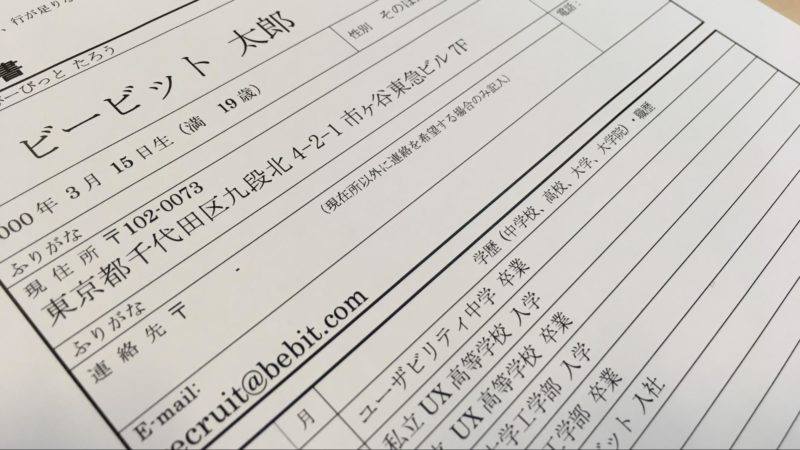 、行が足りな
書
びーびっと たろう
ビービット 太郎
性別
電話：
000 年 3 月 15 日生 (満 19 歳)
ふりがな
現 住 所 〒102-0073
東京都千代田区九段北 4-2-1 市ヶ谷東急ビル 7F
ふりがな
(現住所以外に連絡を希望する場合のみ記入)
連 絡 先 〒 -
E-mail:
ecruit@bebit.com
学歴 (中学校、高校、大学、大学院)・職歴
月
ユーザビリティ中学 卒業
私立 UX 高等学校 入学
UX 高等学校 卒業
学工学部 入学
工学部 卒業
ット 入社